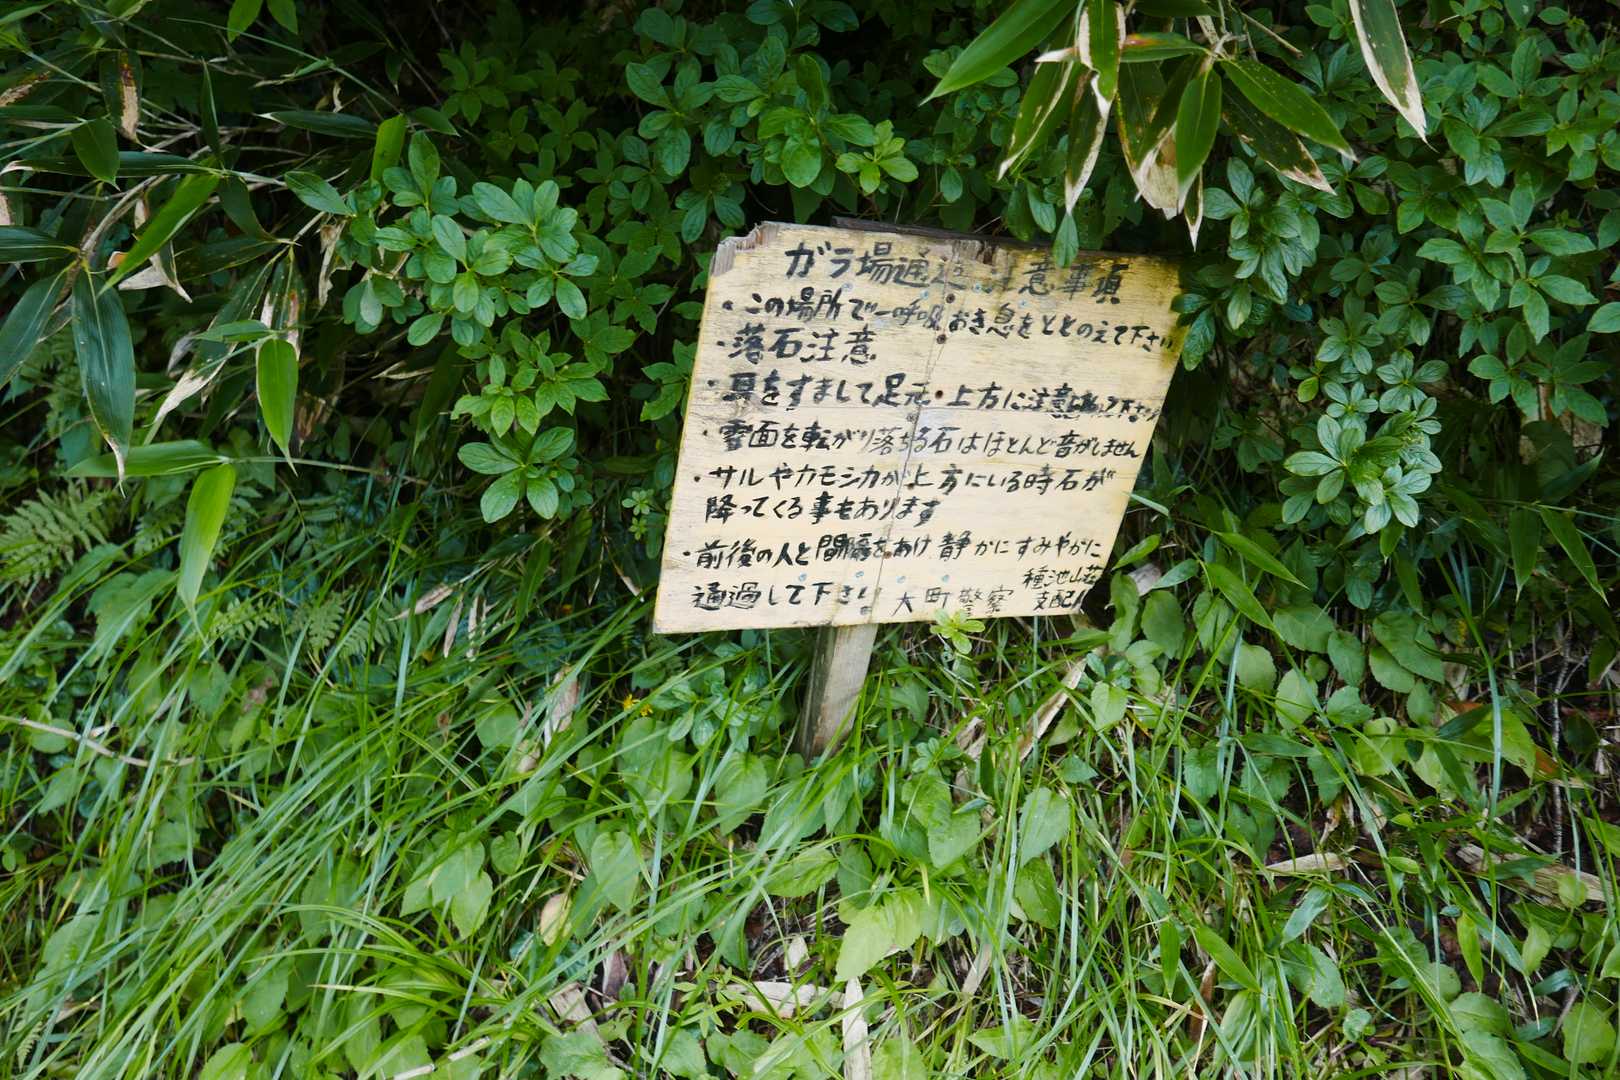 ガラ場通過注意事項
・この場所で一呼吸おき息をととのえて下さい
・落石注意
・耳をすまして足元・上方に注意し下さい
・雪面を転がり落ちる石はほとんど音がしません
・サルやカモシカが上方にいる時石が
降ってくる事もあります
・前後の人と間隔をあけ静かにすみやかに
通過して下さい 大町警察
種池山荘
支配人